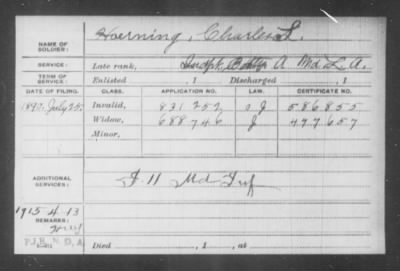 NAME OF SOLDIER: Hoerning, Charles L.
SERVICE: Late rank, Batty A Md L. A.
TERM OF SERVICE: Enlisted , 1 Discharged , 1
DATE OF FILING. CLASS. APPLICATION NO. LAW. CERTIFICATE NO.
1890. July 25. Invalid, 831252 J 586855
Widow, 688746 J 497657
Minor,
ADDITIONAL SERVICES: F. 11 Md Inf
1915-4-13
REMARKS:
Died , 1 , at